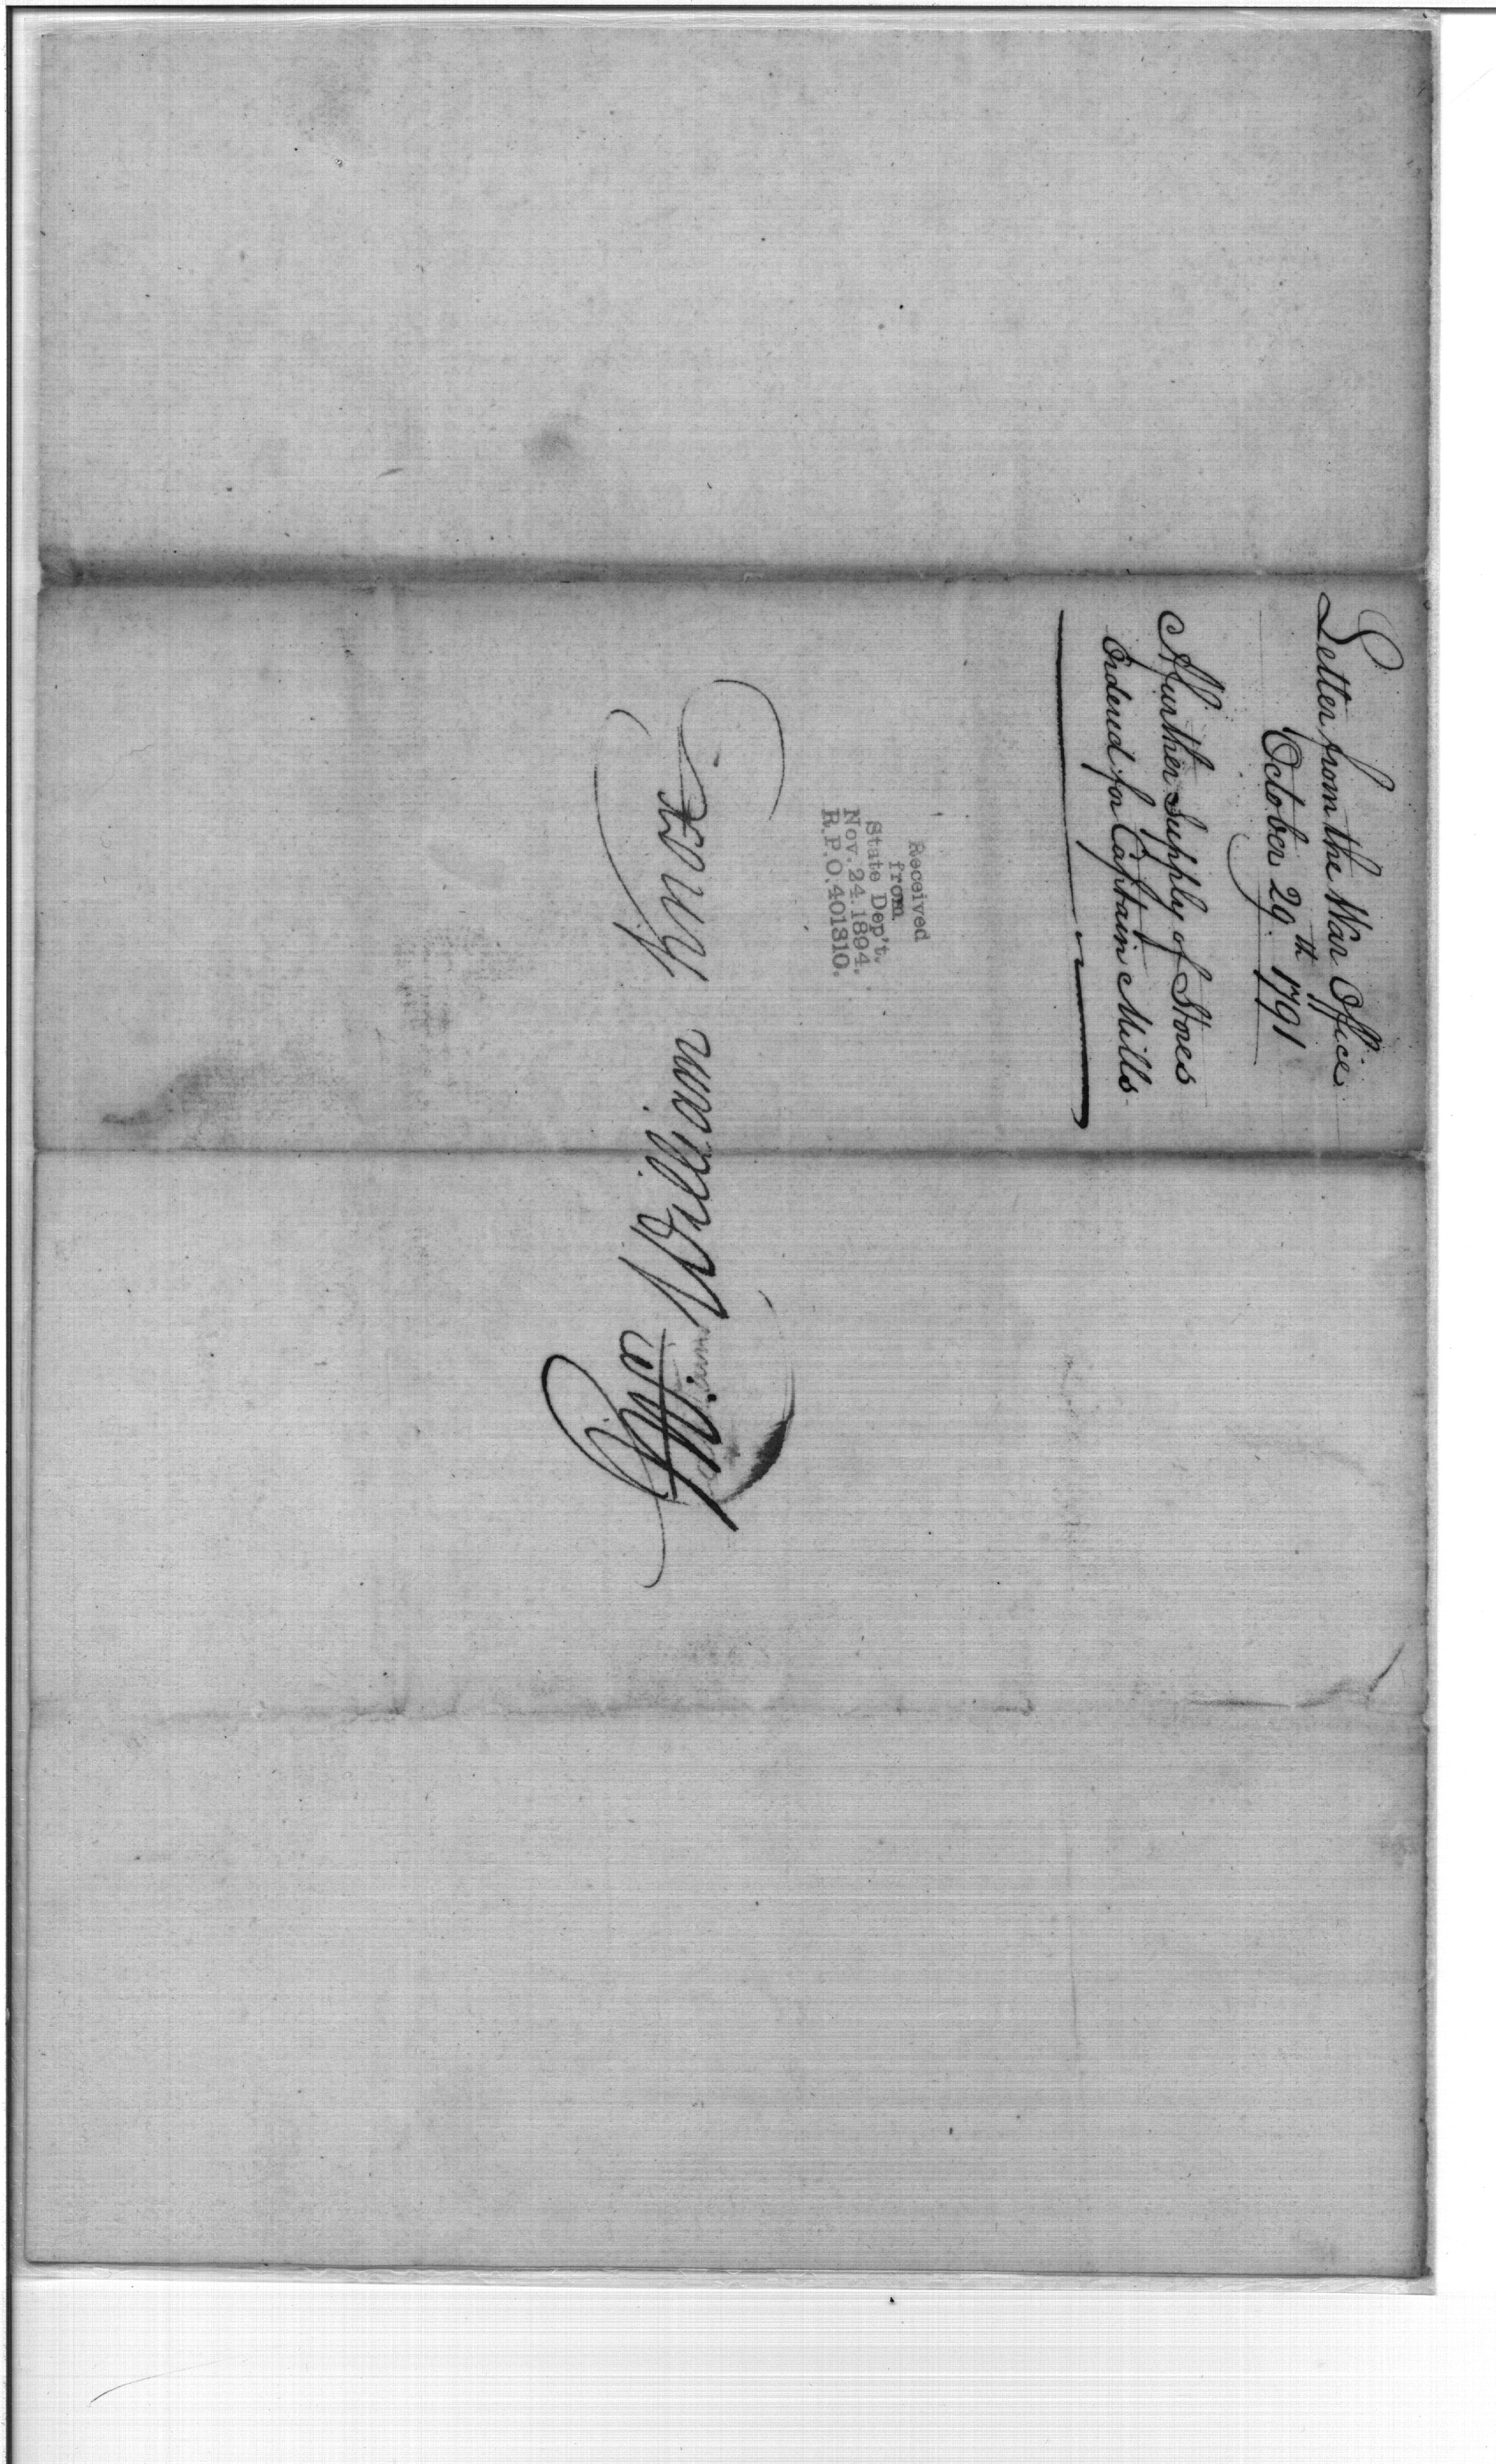 Letter from the War Office
October 29.th 1791
A further Supply of Stores
Ordered for Captain Mills
Received
from
State Dep't.
Nov. 24. 1894.
R.P.O. 401310.
William Knox